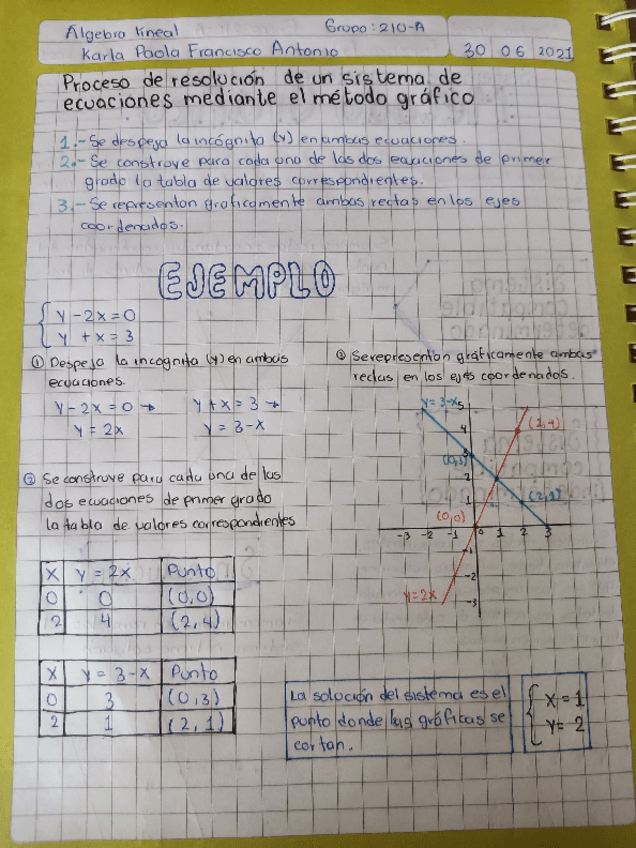 Álgebra lineal Grupo: 210-A
Karla Paola Francisco Antonio 30 06 2021
Proceso de resolución de un sistema de
ecuaciones mediante el método gráfico
1.- Se despeja la incógnita (y) en ambas ecuaciones.
2.- Se construye para cada una de las dos ecuaciones de primer
grado la tabla de valores correspondientes.
3.- Se representan graficamente ambas rectas en los ejes
coordenados.
EJEMPLO
y - 2x = 0
y + x = 3
① Despeja la incognita (y) en ambas
ecuaciones.
y - 2x = 0 → y + x = 3 →
y = 2x y = 3 - x
② Se construye para cada una de las
dos ecuaciones de primer grado
la tabla de valores correspondientes
x y = 2x Punto
0 0 (0,0)
2 4 (2,4)
x y = 3 - x Punto
0 3 (0,3)
2 1 (2,1)
Se representan gráficamente ambas
rectas en los ejes coordenados.
y = 3 - x 5
4 (2,4)
(0,3) 3
2
1 (2,1)
(0,0)
-3 -2 -1 0 1 2 3
-1
-2
y = 2x -3
La solución del sistema es el
punto donde las gráficas se
cortan.
x = 1
y = 2